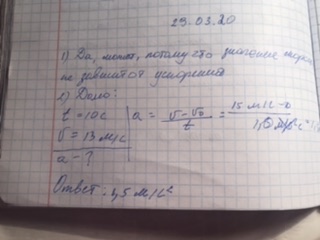 29.03.20
1) Да, может, потому что значение скорос
не зависит от ускорения
2) Дано:
t = 10 с
v = 13 м/с
a - ?
a = v - v₀ / t = 15 м/с - 0 /
Ответ: 1,5 м/с²